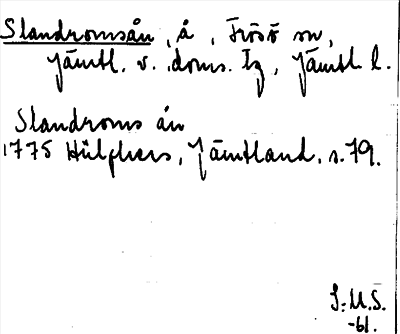 Slandromsån, å, Frösö sn,
Jämtl. v. doms. tg, Jämtl. l.
Slandroms ån
1775 Hülphers, Jämtland, s. 79.
S:M.S.
-61.